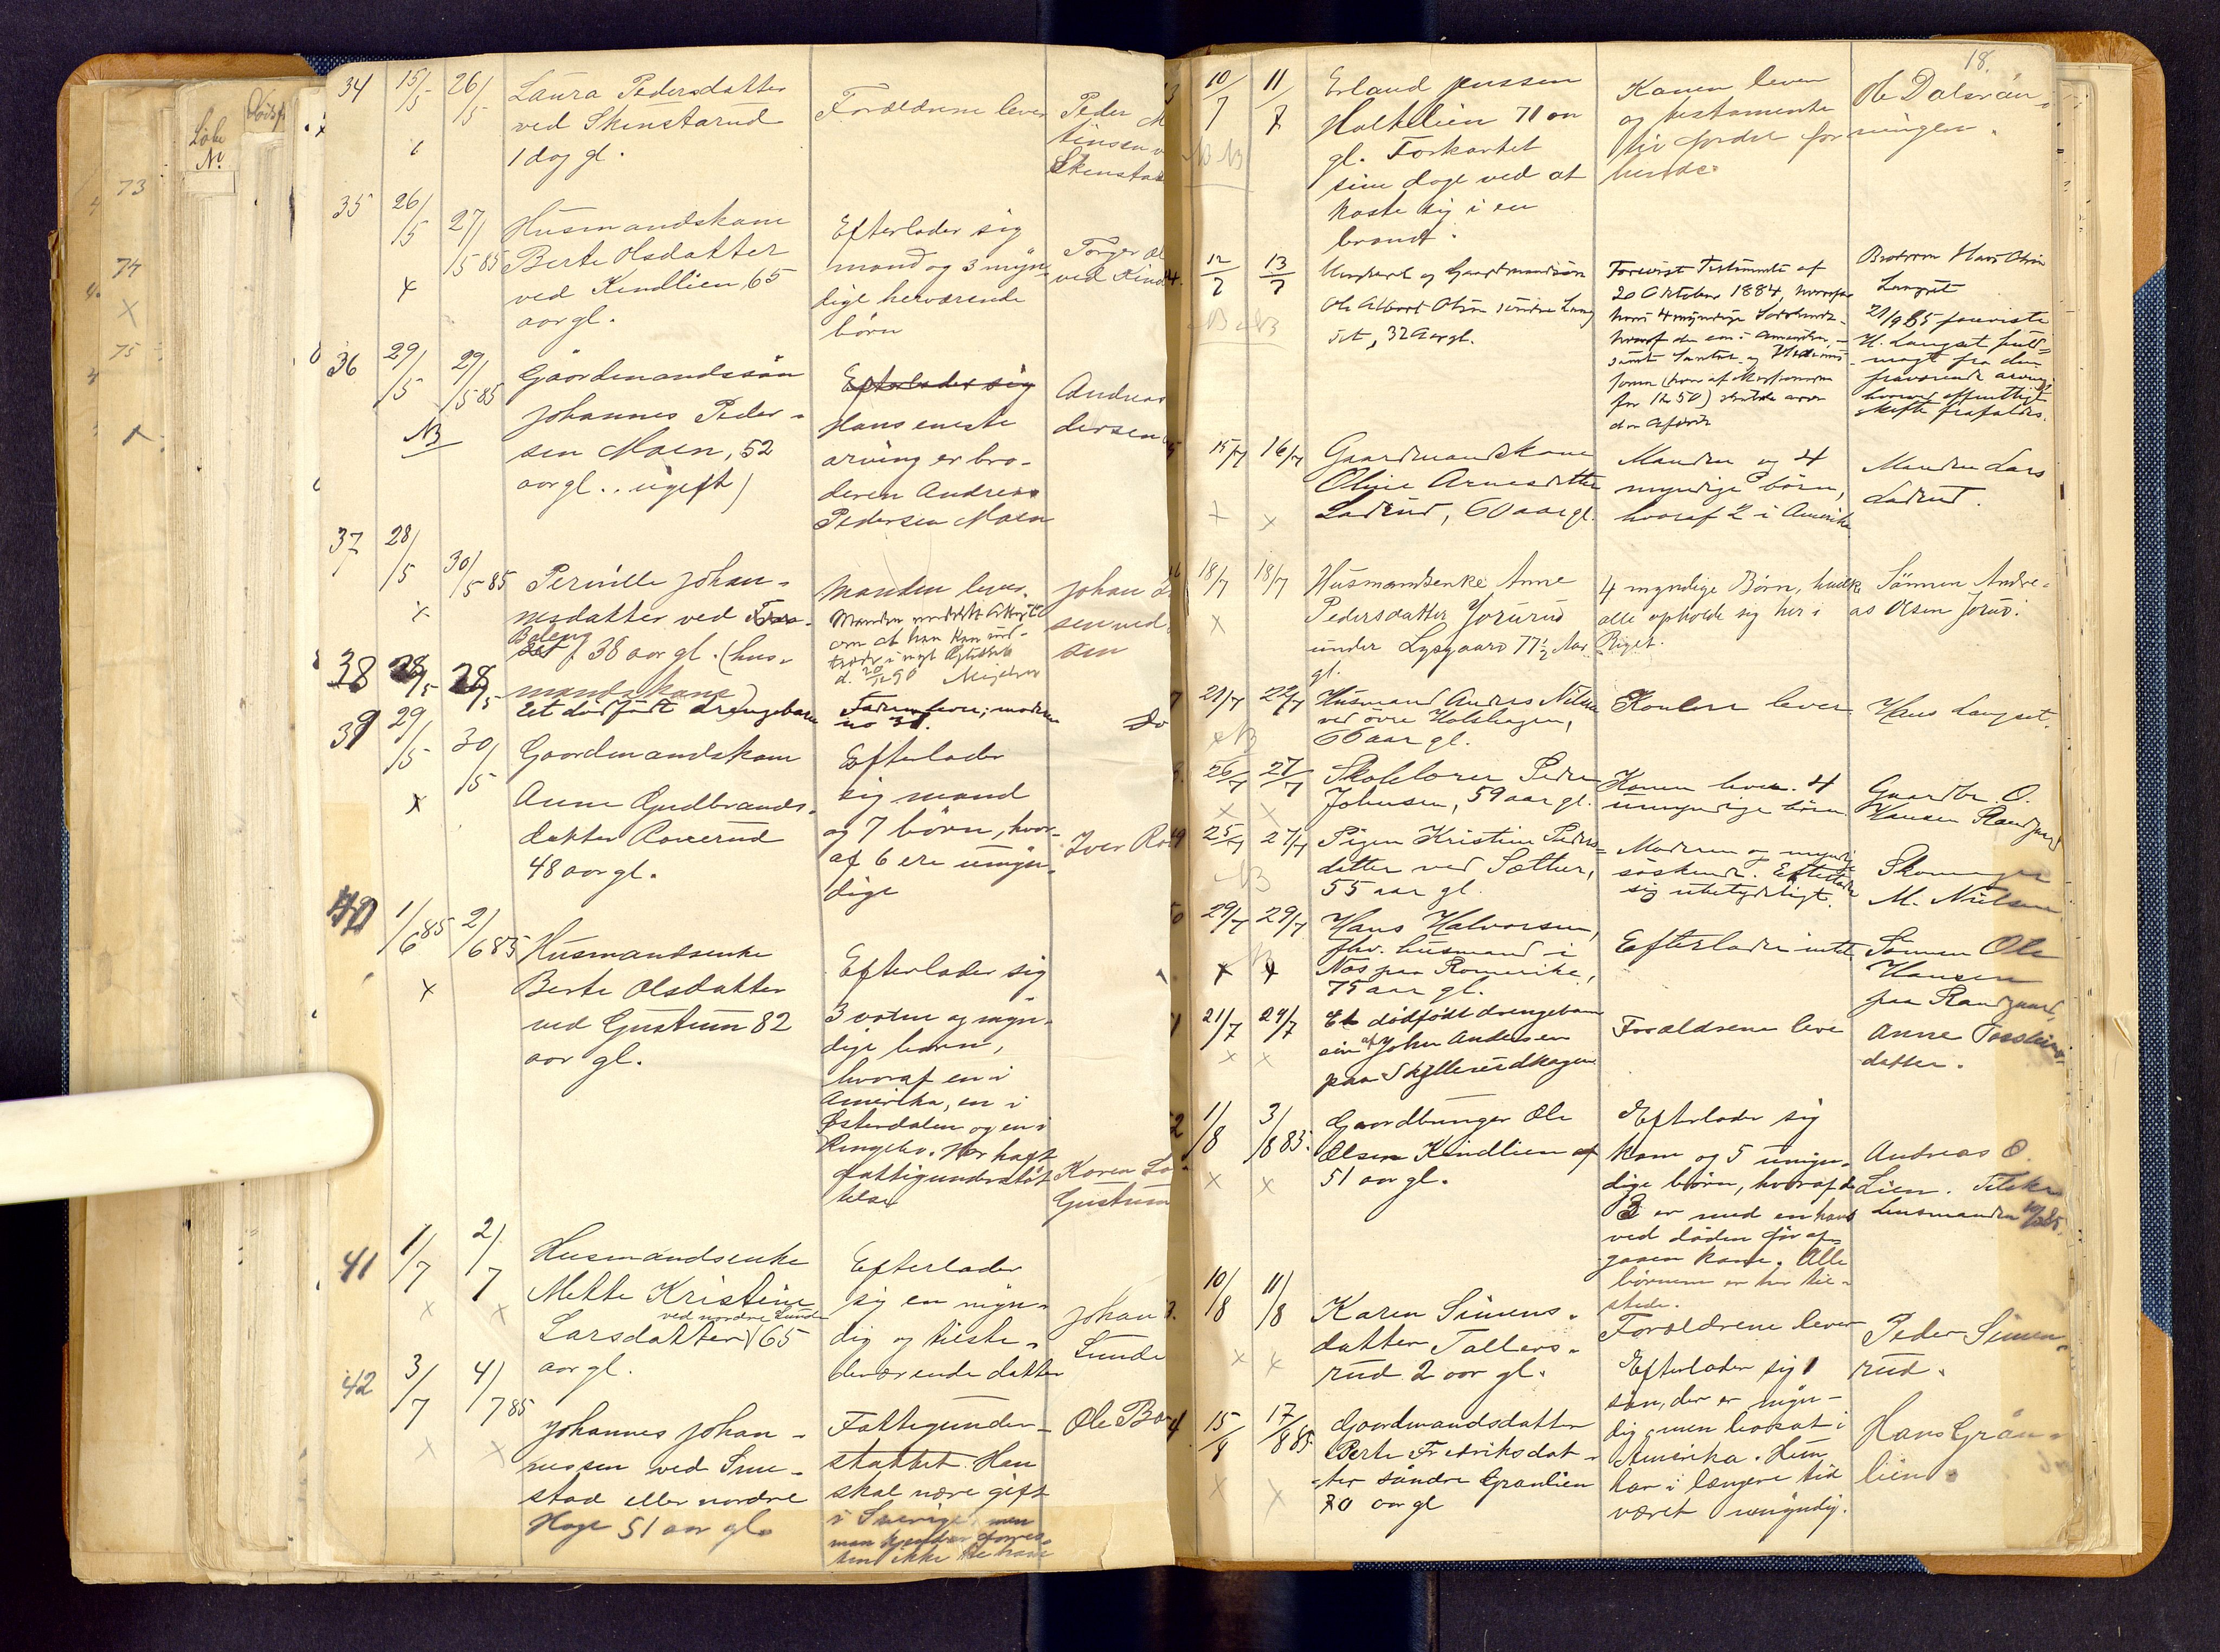 34
15/5
26/5
Laura Pedersdatter
ved Skinstarud
1 dag gl.
Forældrene lever
Peder
tinsen
Skinstad
35
26/5
27/5 85
Husmandskone
Berte Olsdatter
ved Kindlien, 65
aar gl.
Efterlader sig
mand og 3 myn-
dige herværende
børn
Torger
ved Kind
36
29/5
29/5 85
NB
Gaardmandssøn
Johannes Peder-
sen Moen, 52
aar gl. ugift)
Efterlader sig
Hans eneste
arving er bro-
deren Andreas
Pedersen Moen
Andreas
dersen
37
28/5
30/5 85
Pernille Johan-
nesdatter ved
Baleng
38 aar gl. (hus-
mandskone)
Manden lever.
Manden
om at han kan ind-
træde i nyt Ægteskab
d. 20/12 90
Johan
sen ved
sen
38
28/5
28/5
Et dødfødt drengebarn
Faderen lever; moderen
no 37.
do
39
29/5
30/5
Gaardmandskone
Anne Gudbrands-
datter Roverud
48 aar gl.
Efterlader
sig mand
og 7 børn, hvor-
af 6 ere umyn-
dige
Iver Ro
40
1/6 85
2/6 85
Husmandsenke
Berte Olsdatter
ved Gustum 82
aar gl.
Efterlader sig
3 voxne og myn-
dige børn,
hvoraf en i
Amerika, en i
Østerdalen og en i
Ringebo. Har haft
fattigunderstøt
telse
Karen
Gustum
41
1/7
2/7
Husmandsenke
Mette Kristine
ved nordre Lunde
Larsdatter 65
aar gl.
Efterlader
sig en myn-
dig og tilste-
deværende datter
Johan
Lunde
42
3/7
4/7 85
Johannes Johan-
nessen ved Sme-
stad eller nordre
Hage 51 aar gl.
Fattigunder-
støttet. Han
skal være gift
i Sverige, men
man kjender forres-
ten ikke
Ole Bo
18.
10/7
11/7
NB
Erland
Holtelien 71 aar
gl. Forkortet
sine dage ved at
kaste sig i en
brønd.
Konen lever
og testamente
til fordel for
hende.
Ole Dalsvæn-
ningen.
12/7
13/7
NB
Ungkarl og Gaardmandssøn
Ole Albert Olsen søndre Lang
set, 32 Aar gl.
Forevist Testamente af
20 Oktober 1884, hvorefter
hans 4 myndige
hvoraf den ene i Amerika,
samt
for 1250)
Broderen Hans Olsen
Langset
21/9 85 foreviste
H. Langset fuld-
magt fra den
fraværende arving,
hvorved offentligt
skifte frafaldes.
15/7
16/7
Gaardmandskone
Oline Arnesdatter
Ladrud, 60 aar gl.
Manden og 4
myndige børn,
hvoraf 2 i Amerika
Manden Lars
Ladrud.
18/7
18/7
Husmandsenke Anne
Pedersdatter Jorurud
under Lysgaard 77½ Aar
gl.
4 myndige Børn, hvilke
alle opholde sig her i
Riget.
Sønnen Andre-
as Olsen
21/7
22/7
NB
Husmand Andres Nilsen
ved øvre Holehagen,
66 aar gl.
Konen lever
Hans Langset.
26/7
27/7
Skolelærer Peder
Johnsen, 59 aar gl.
Konen lever. 4
umyndige børn
Gaardbr. O.
Hansen Randgaard
25/7
27/7
NB
Pigen Kristine Peders-
datter ved Sætter,
55 aar gl.
Moderen og myndige
søskende. Efterlader
sig ubetydeligt.
Skomager
M. Nielsen
29/7
29/7
NB
Hans Halvorsen,
fhv. husmand i
Næs paa Romerike,
75 aar gl.
Efterlader intet
Sønnen Ole
Hansen
paa Randgaard.
21/7
24/7
Et dødfødt drengebarn
af John Andersen
paa Skyllerudhagen
Forældrene leve
Anne Torstens-
datter.
1/8
3/8 85.
Gaardbruger Ole
Olsen Kindlien af
51 aar gl.
Efterlader sig
kone og 5 umyn-
dige børn, hvoraf de
3 er med en hans
ved døden før af-
gaaen kone. Alle
børnene er her til-
stede.
Andreas O.
Lien.
Lensmanden
10/8
11/8
Karen Simens-
datter Tallers-
rud 2 aar gl.
Forældrene lever
Peder Simen-
rud.
15/8
17/8 85
Gaardmandsdatter
Berte Fredriksdat-
ter søndre Granlien
70 aar gl
Efterlader sig 1
søn, der er myn-
dig, men bosat i
Amerika. Hun
har i længere tid
været umyndig.
Hans Gran-
lien.
Løbe
No.
73
74
75